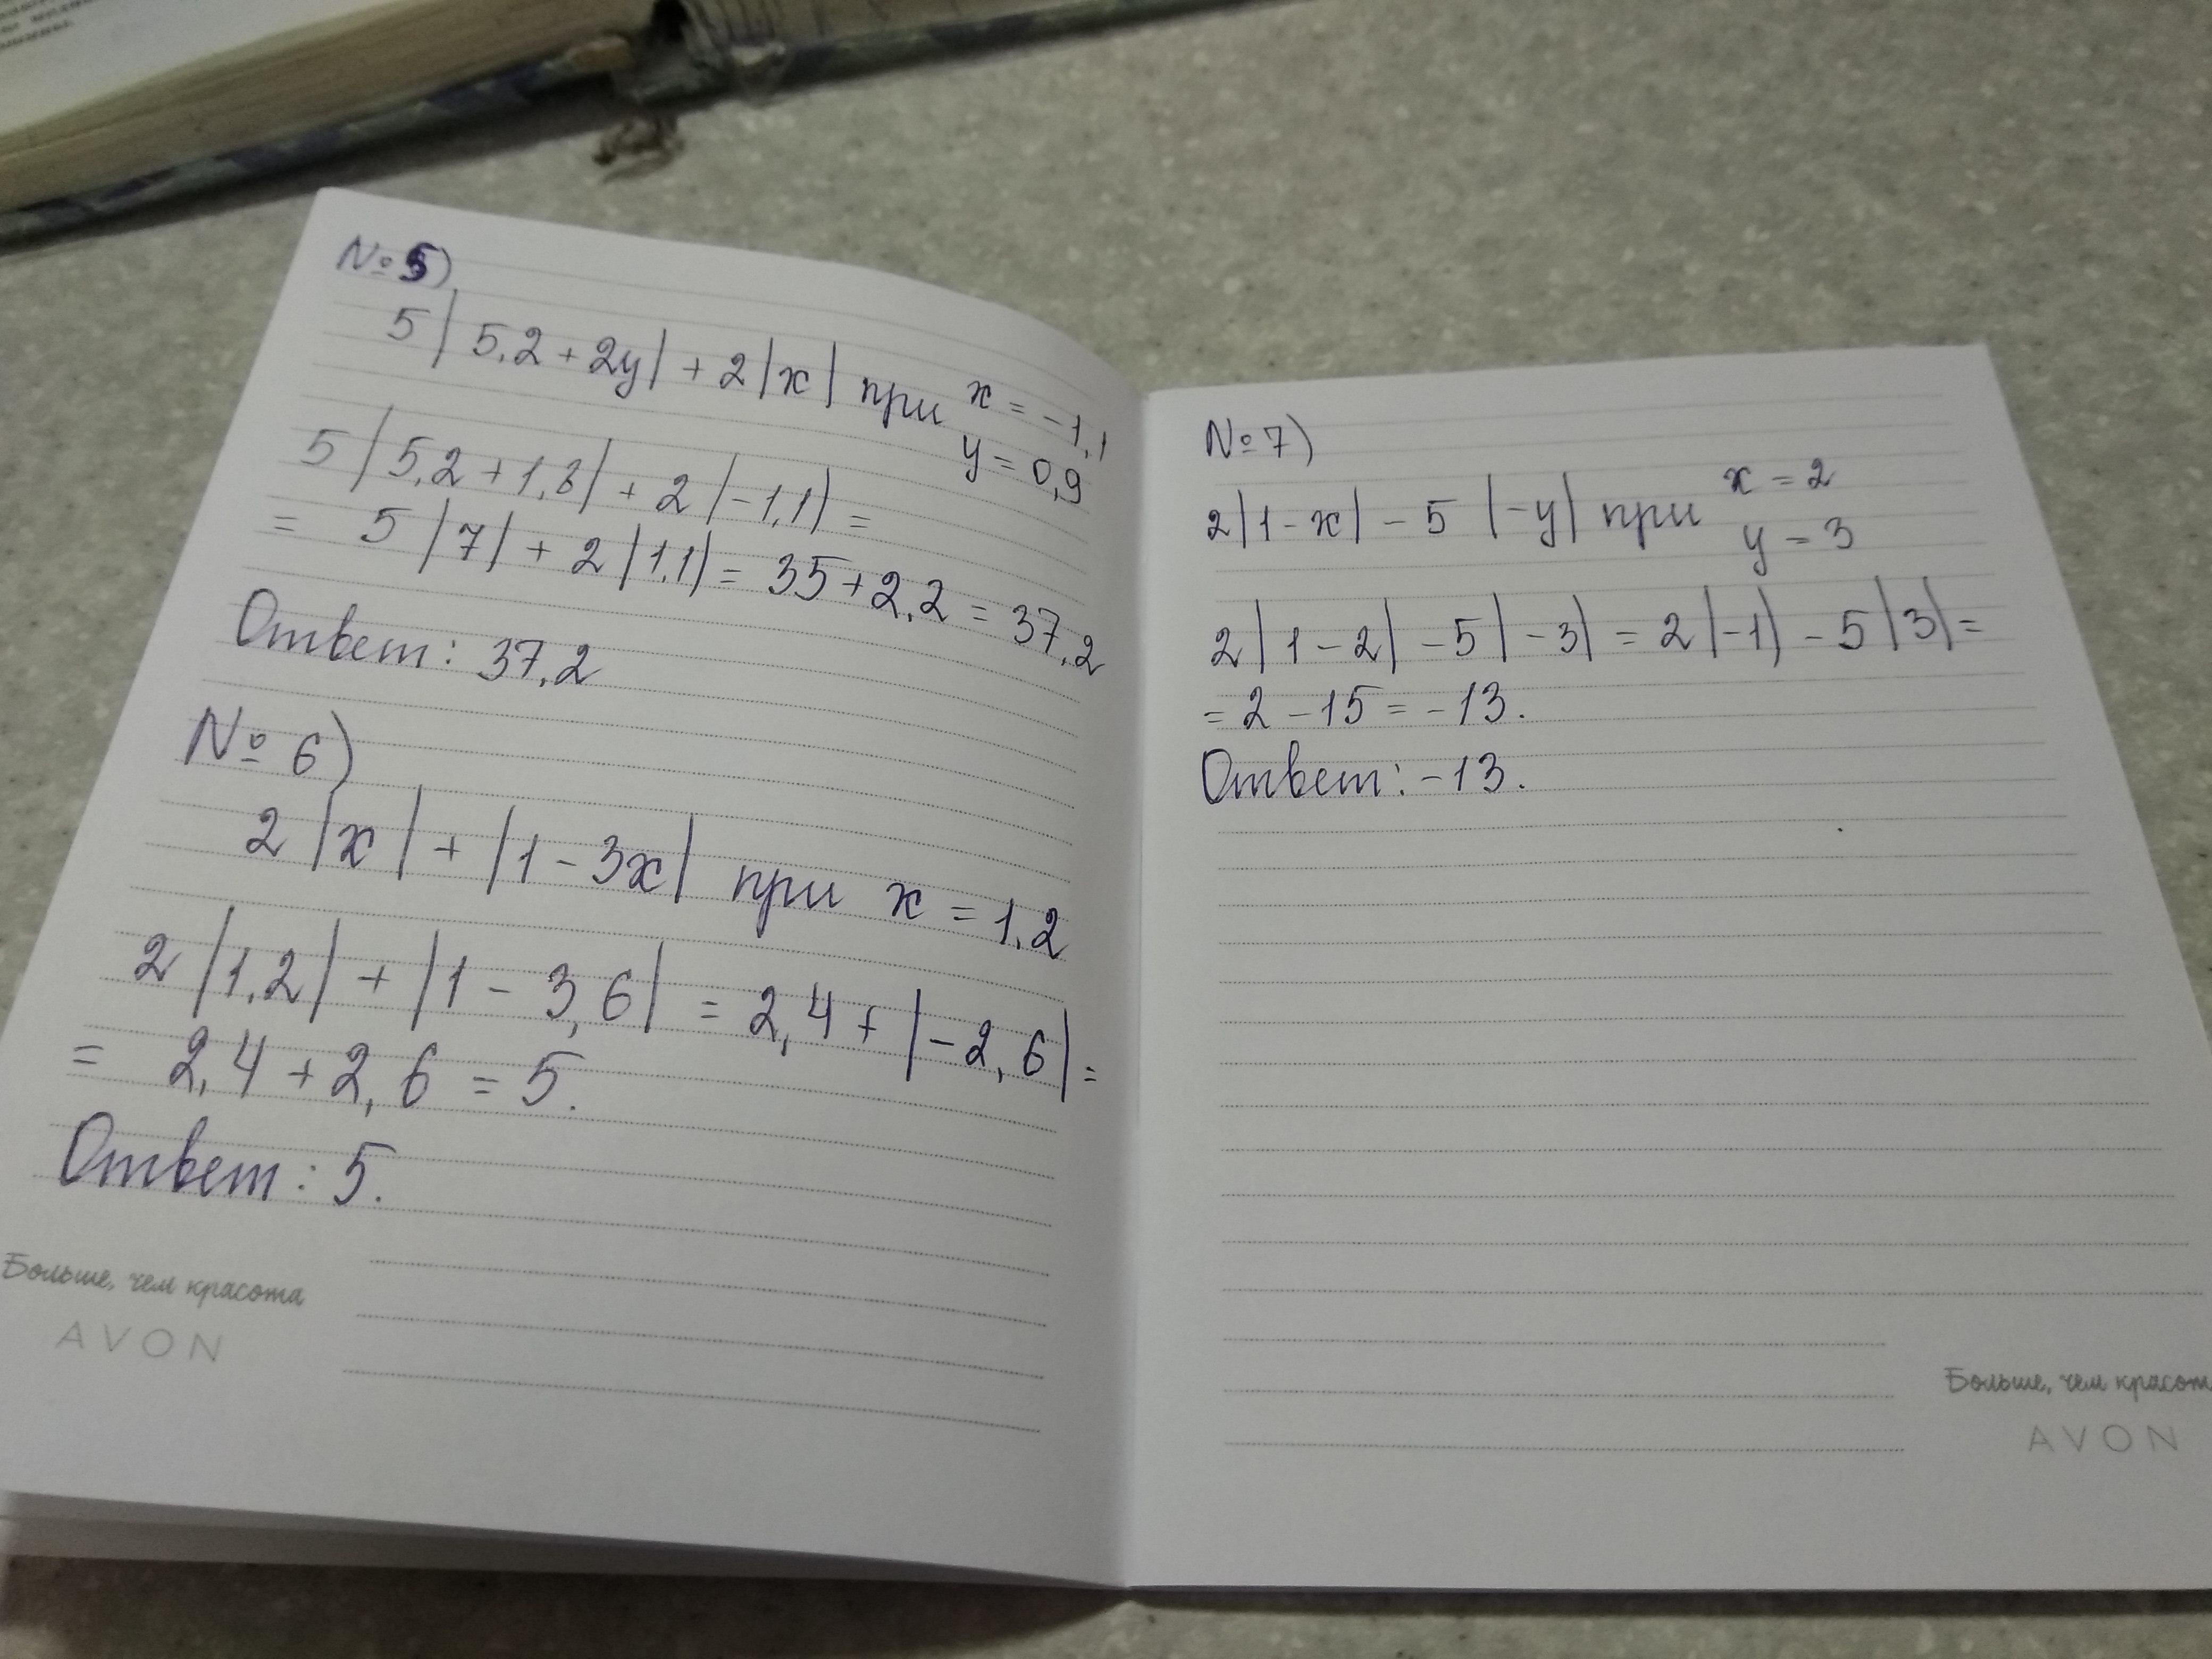 № 5)
5|5,2+2y|+2|x| при x=-1,1
y=0,9
5|5,2+1,8|+2|-1,1|=
= 5|7|+2|1,1|=35+2,2=37,2
Ответ: 37,2
№ 6)
2|x|+|1-3x| при x=1,2
2|1,2|+|1-3,6|=2,4+|-2,6|=
= 2,4+2,6=5.
Ответ: 5.
Больше, чем красота
AVON
№ 7)
2|1-x|-5|-y| при x=2
y=3
2|1-2|-5|-3|=2|-1|-5|3|=
=2-15=-13.
Ответ: -13.
Больше, чем красот
AVON